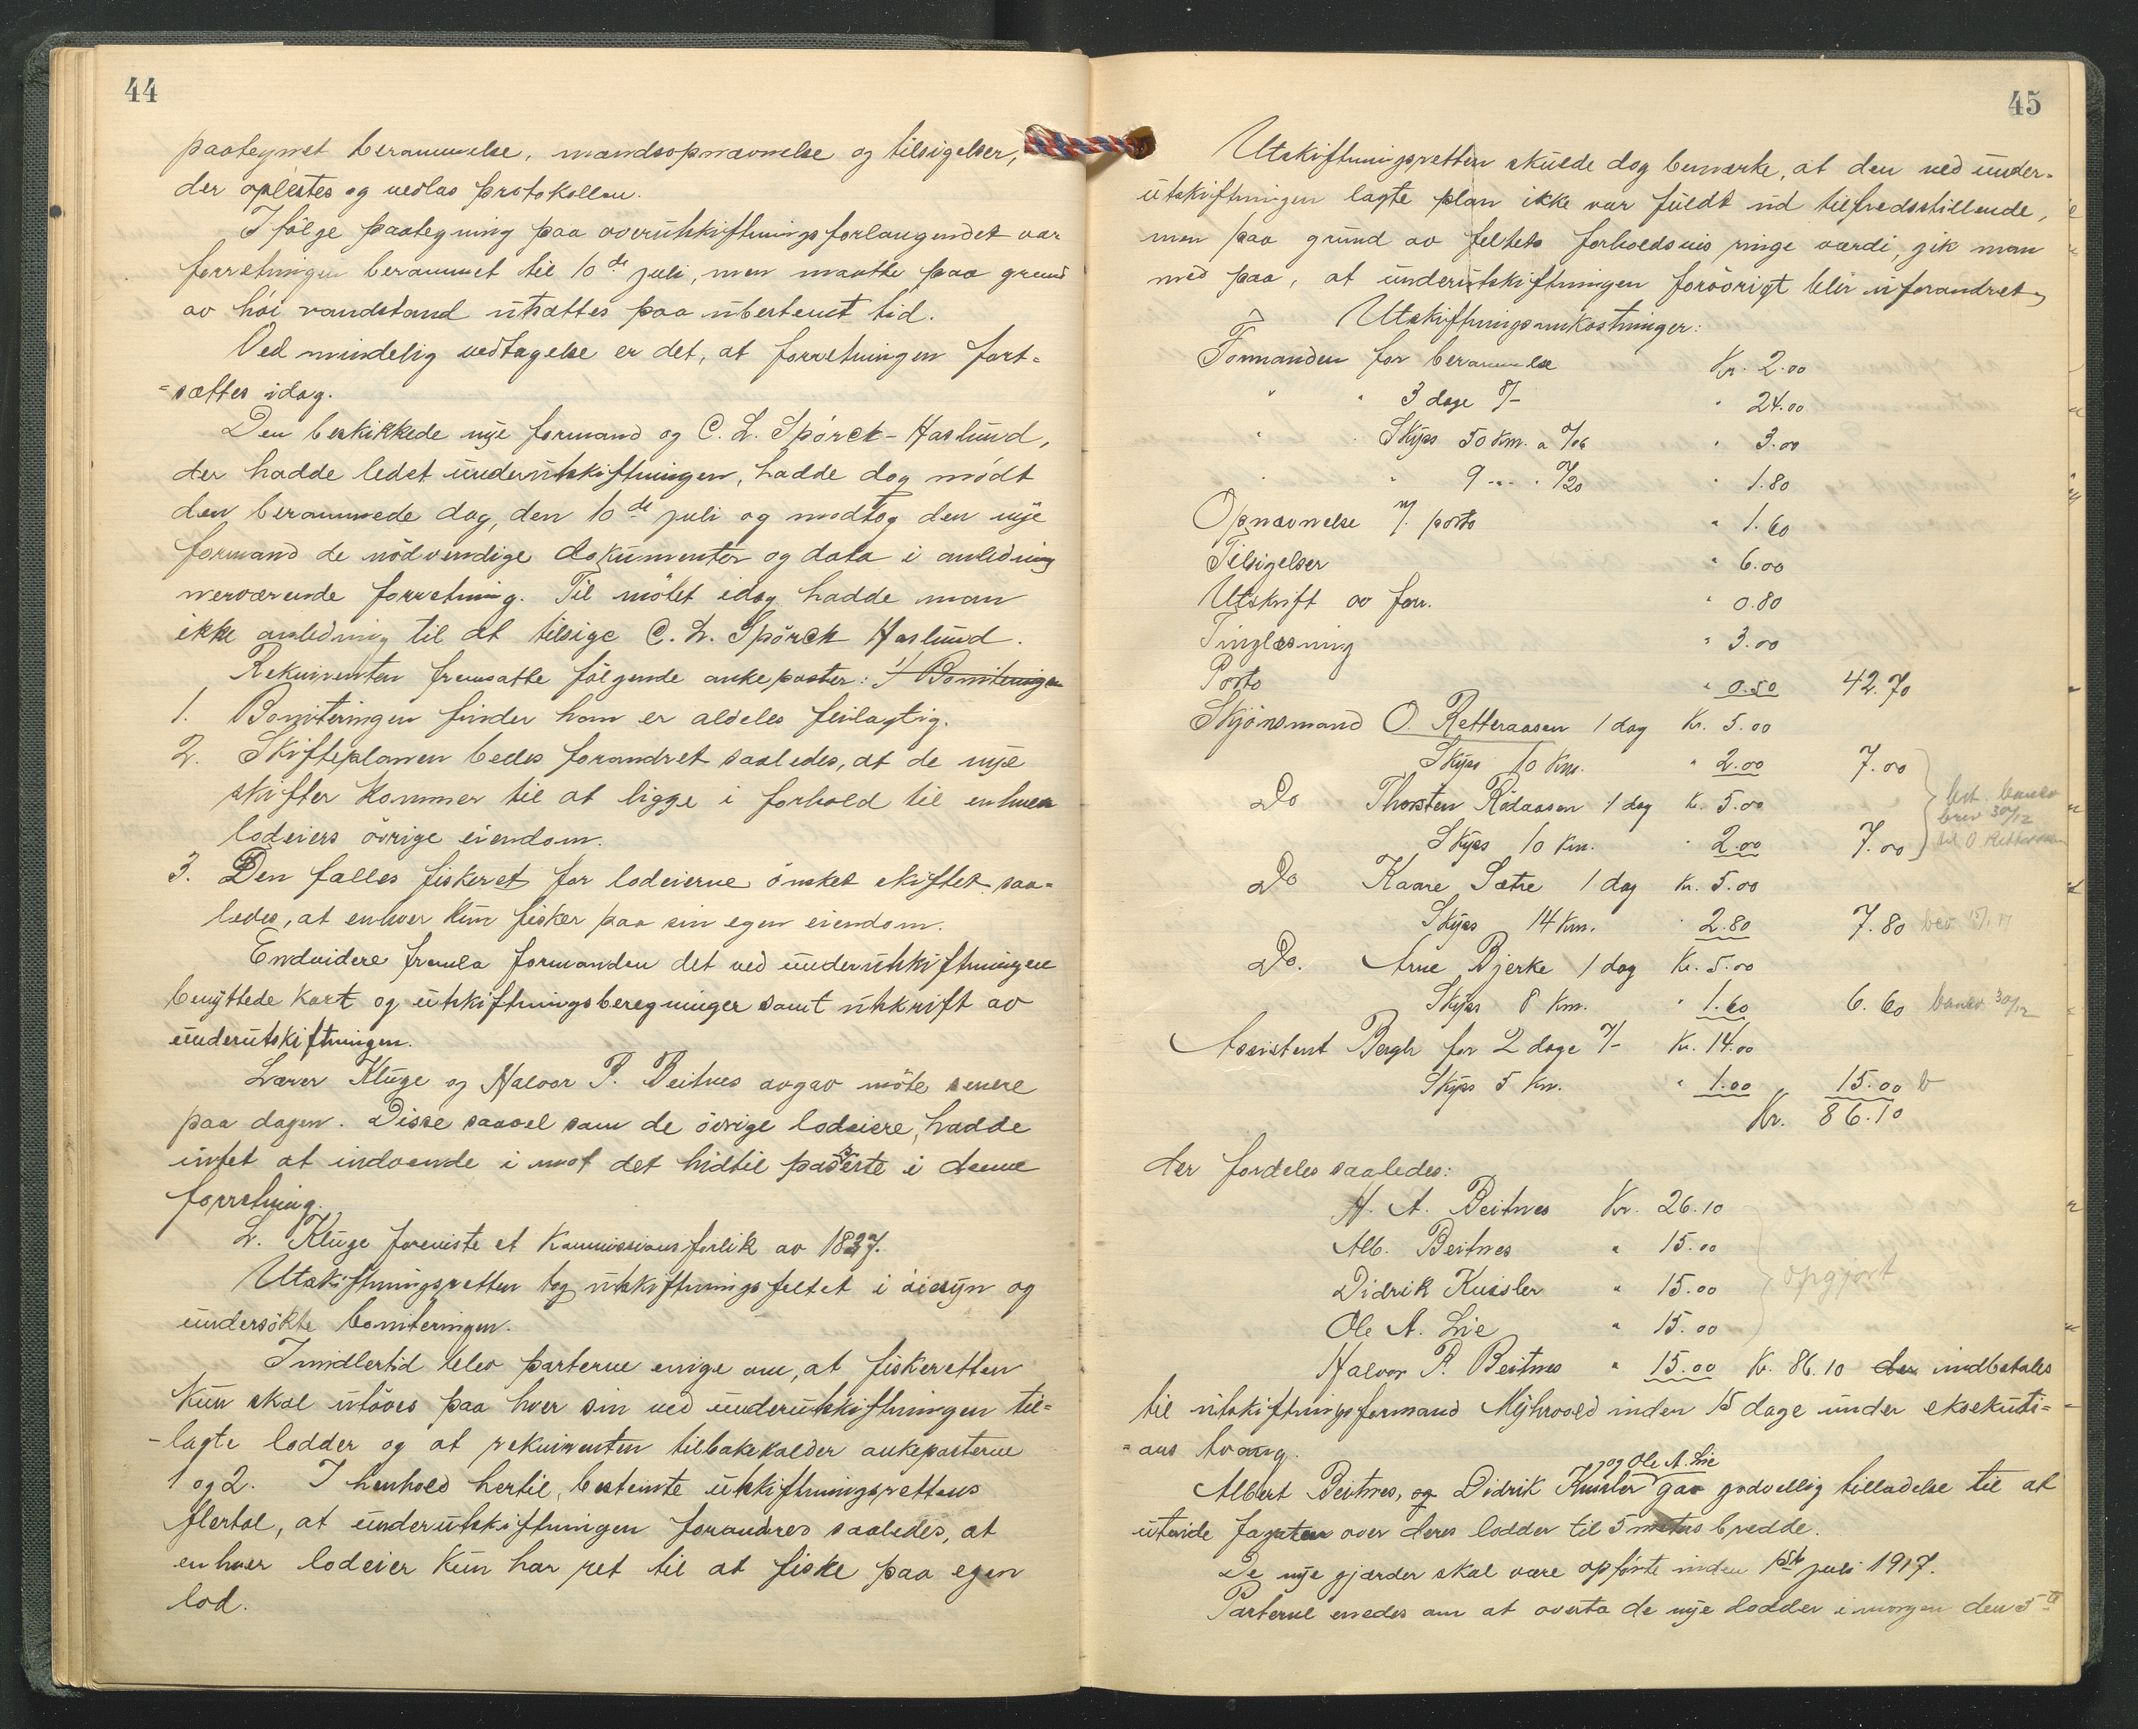 44
paategnet berammelse, mandsopnævnelse og tilsigelser,
der oplæstes og vedlas protokollen.
Ifölge paategning paa overutskiftningsforlangendet var
forretningen berammet til 10de juli, men maatte paa grund
av höi vandstand utsættes paa ubestemt tid.
Ved mindelig vedtagelse er det, at forretningen fort-
-sættes idag.
Den beskikkede nye formand og C. L. Spörck-Haslund,
der hadde ledet underutskiftningen, hadde dog mödt
den berammede dag, den 10de juli og modtog den nye
formand de nödvendige dokumenter og data i anledning
nerværende forretning. Til mötet idag hadde man
ikke anledning til at tilsige C. L. Spörck Haslund.
Rekvirenten fremsatte fölgende ankeposter: 1/ Boniteringen
1. Boniteringen finder han er aldeles feilagtig.
2. Skifteplanen bedes forandret saaledes, at de nye
skifter kommer til at ligge i forhold til enhver
lodeiers övrige eiendom.
3. Den fælles fiskeret for lodeierne önskes skiftet saa-
ledes, at enhver kun fisker paa sin egen eiendom.
Endvidere framla formanden det ved underutskiftningen
benyttede kart og utskiftningsberegninger samt utskrift av
underutskiftningen.
Lærer Kluge og Halvor P. Beitnes avgav möte senere
paa dagen. Disse saavel som de övrige lodeiere, hadde
intet at indvende i mot det hidtil passerte i denne
forretning.
L. Kluge foreviste et Kommissionsforlik av 1837.
Utskiftningsretten tog utskiftningsfeltet i öiesyn og
undersökte boniteringen.
Imidlertid blev parterne enige om, at fiskeretten
kun skal utöves paa hver sin ved underutskiftningen til-
-lagte lodder og at rekvirenten tilbakekalder ankeposterne
1 og 2. I henhold hertil, bestemte utskiftningsrettens
flertal, at underutskiftningen forandres saaledes, at
enhver lodeier kun har ret til at fiske paa egen
lod.
45
Utskiftningsretten skulde dog bemærke, at den ved under-
utskiftningen lagte plan ikke var fuldt ud tilfredsstillende,
men paa grund av feltets forholdsvis ringe værdi, gik man
med paa, at underutskiftningen forövrigt blir uforandret,
Utskiftningsomkostninger:
Formanden for berammelse Kr. 2.00
" " 3 dage 8/- " 24.00
" " Skyss 50 Km. a -/06 " 3.00
" " 9 " " -/20 " 1.80
Opnævnelse m/. porto " 1.60
Tilsigelser " 6.00
Utskrift av forr. " 0.80
Tinglæsning " 3.00
Porto " 0.50 42.70
Skjönsmand O. Retteraasen 1 dag Kr. 5.00
Skyss 10 Km. " 2.00 7.00
Do Thorsten Rödaasen 1 dag Kr. 5.00
bet. banco
brev 30/12
Skyss 10 Km. " 2.00 7.00 til O Retteraasen
Do Kaare Sætre 1 dag Kr. 5.00
Skyss 14 Km. " 2.80 7.80
Do. Arne Bjerke 1 dag Kr. 5.00
Skyss 8 Km. " 1.60 6.60 banco 30/12
Assistent Bergh for 2 dage 7/- Kr. 14.00
Skyss 5 Km. " 1.00 15.00 b
Kr. 86.10
der fordeles saaledes:
H. A. Beitnes Kr. 26.10
Alb. Beitnes " 15.00
opgjort
Didrik Kussler " 15.00
Ole A. Lie " 15.00
Halvor P. Beitnes " 15.00 Kr. 86.10 der indbetales
til utskiftningsformand Myhrvold inden 15 dage under eksekuti-
-ons tvang.
og Ole A. Lie
Albert Beitnes, og Didrik Kussler gav godvillig tilladelse til at
utvide fægaten over deres lodder til 5 meters bredde.
De nye gjærder skal være opförte inden 1ste juli 1917.
Parterne enedes om at overta de nye lodder i morgen den 5te